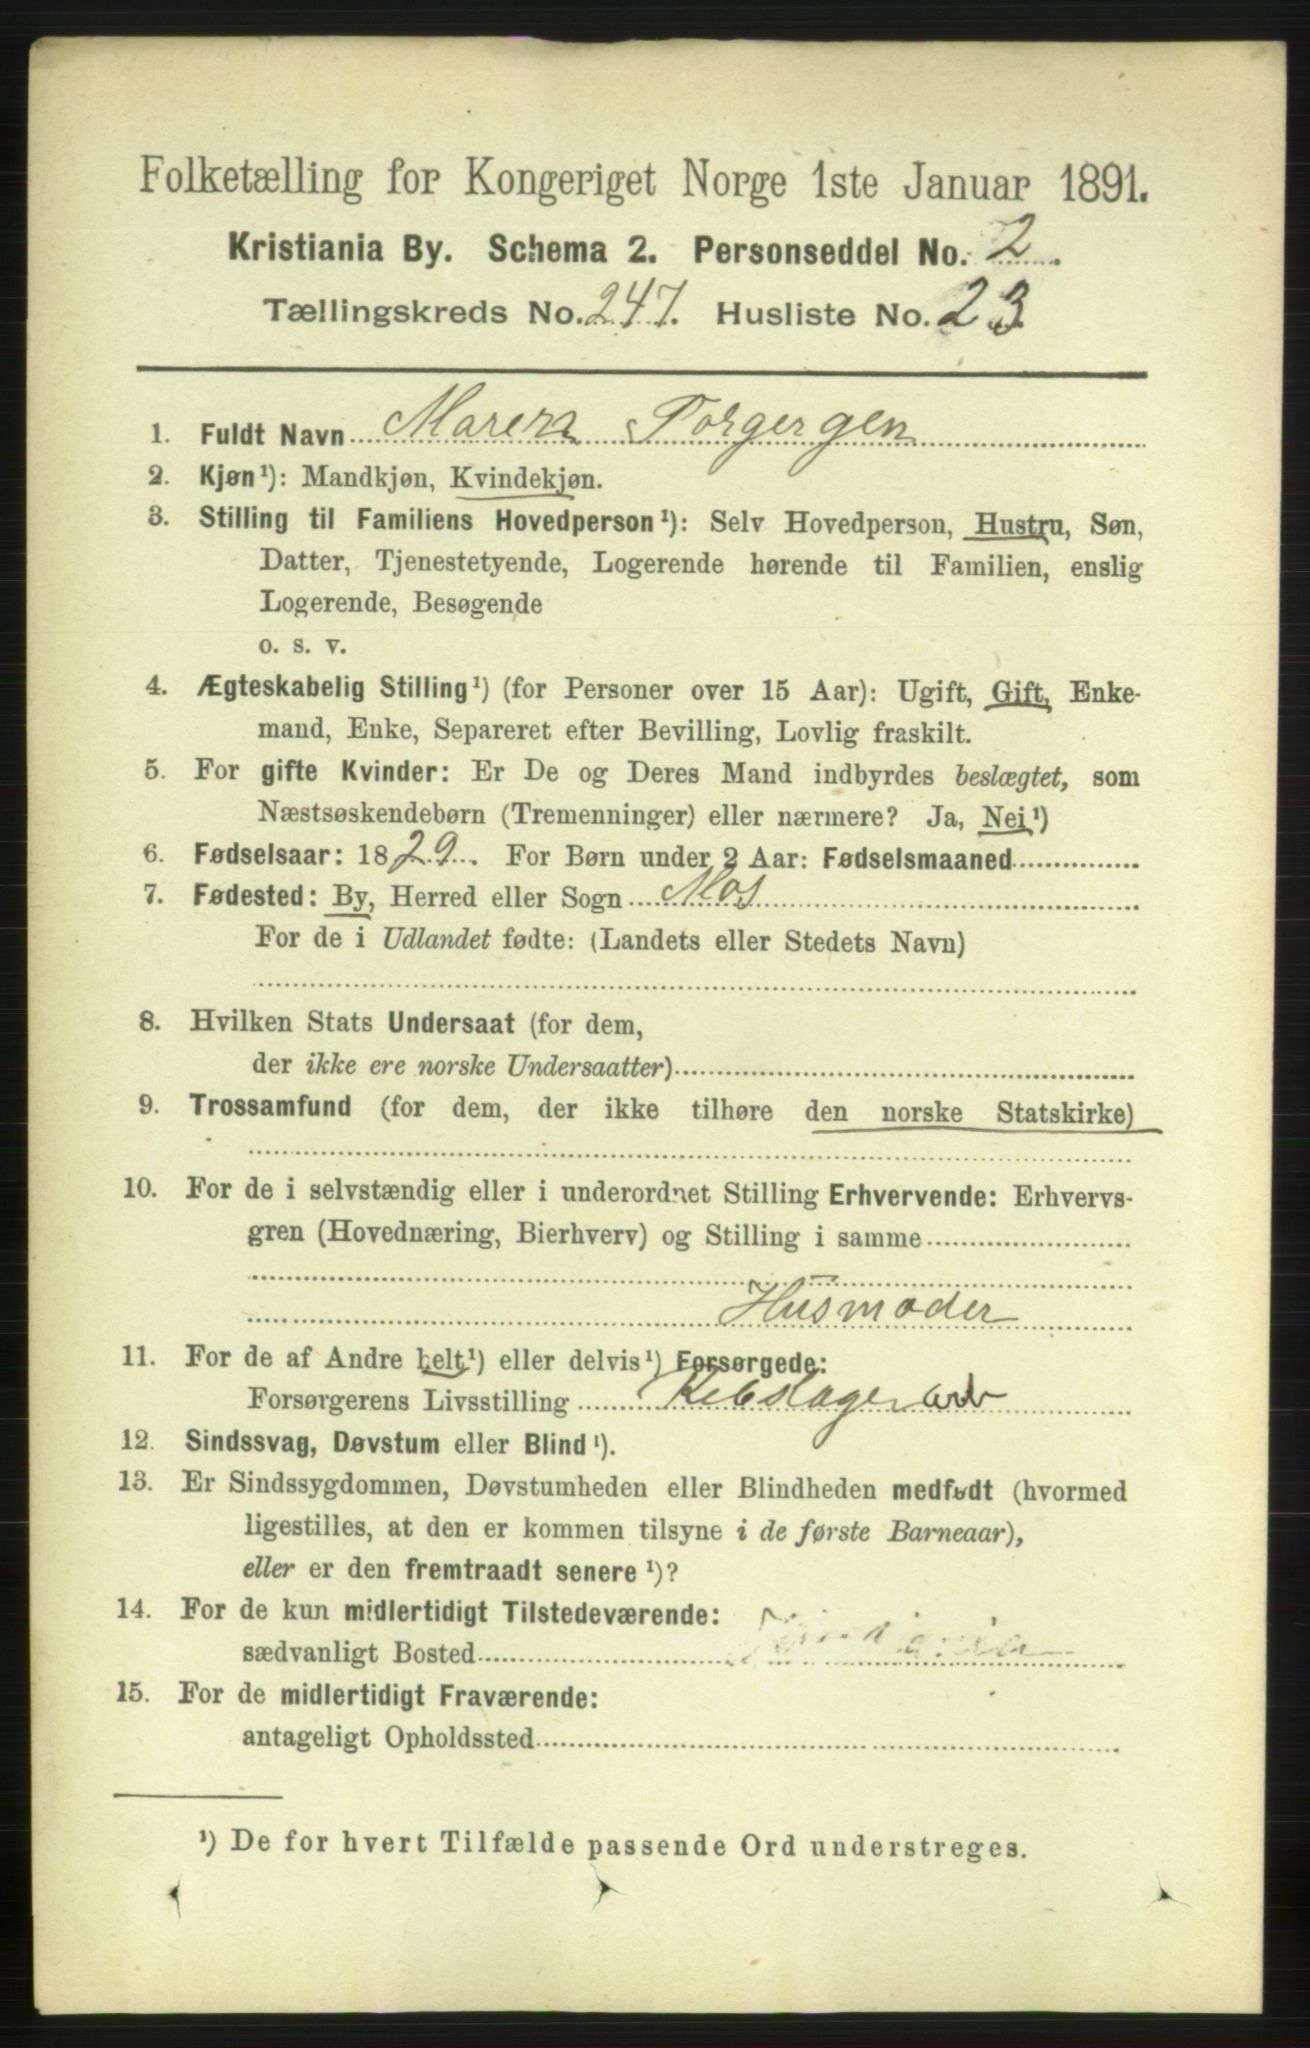 Folketælling for Kongeriget Norge 1ste Januar 1891.
Kristiania By. Schema 2. Personseddel No. 2
Tællingskreds No. 247. Husliste No. 23
1. Fuldt Navn Marera Torgergen
2. Kjøn¹): Mandkjøn, Kvindekjøn.
3. Stilling til Familiens Hovedperson¹): Selv Hovedperson, Hustru, Søn,
Datter, Tjenestetyende, Logerende hørende til Familien, enslig
Logerende, Besøgende
o. s. v.
4. Ægteskabelig Stilling¹) (for Personer over 15 Aar): Ugift, Gift, Enke-
mand, Enke, Separeret efter Bevilling, Lovlig fraskilt.
5. For gifte Kvinder: Er De og Deres Mand indbyrdes beslægtet, som
Næstsøskendebørn (Tremenninger) eller nærmere? Ja, Nei¹)
6. Fødselsaar: 1829. For Børn under 2 Aar: Fødselsmaaned
7. Fødested: By, Herred eller Sogn Mos
For de i Udlandet fødte: (Landets eller Stedets Navn)
8. Hvilken Stats Undersaat (for dem,
der ikke ere norske Undersaatter)
9. Trossamfund (for dem, der ikke tilhøre den norske Statskirke)
10. For de i selvstændig eller i underordnet Stilling Erhvervende: Erhvervs-
gren (Hovednæring, Bierhverv) og Stilling i samme
Husmoder
11. For de af Andre helt¹) eller delvis¹) Forsørgede:
Forsørgerens Livsstilling Rebslager arb
12. Sindssvag, Døvstum eller Blind¹).
13. Er Sindssygdommen, Døvstumheden eller Blindheden medfødt (hvormed
ligestilles, at den er kommen tilsyne i de første Barneaar),
eller er den fremtraadt senere¹)?
14. For de kun midlertidigt Tilstedeværende:
sædvanligt Bosted
15. For de midlertidigt Fraværende:
antageligt Opholdssted
¹) De for hvert Tilfælde passende Ord understreges.